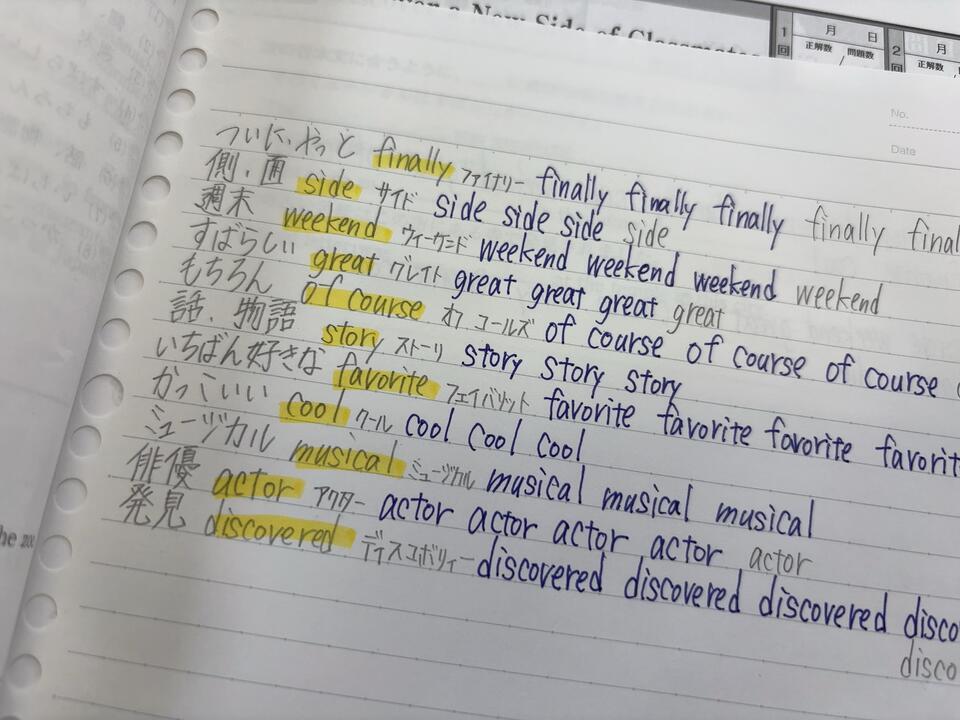 New Side of Classmates
1回 月 日 正解数 / 問題数
2回 月 正解数
No.
Date
ついに、やっと finally ファイナリー finally finally finally finally
側、面 side サイド side side side side
週末 weekend ウィーケンド weekend weekend weekend weekend
すばらしい great グレイト great great great great
もちろん of course オフ コールズ of course of course of course
話、物語 story ストーリ story story story
いちばん好きな favorite フェイバリット favorite favorite favorite
かっこいい cool クール cool cool cool
ミュージカル musical ミュージカル musical musical musical
俳優 actor アクター actor actor actor actor actor
発見 discovered ディスコボリィー discovered discovered discovered disco
disco